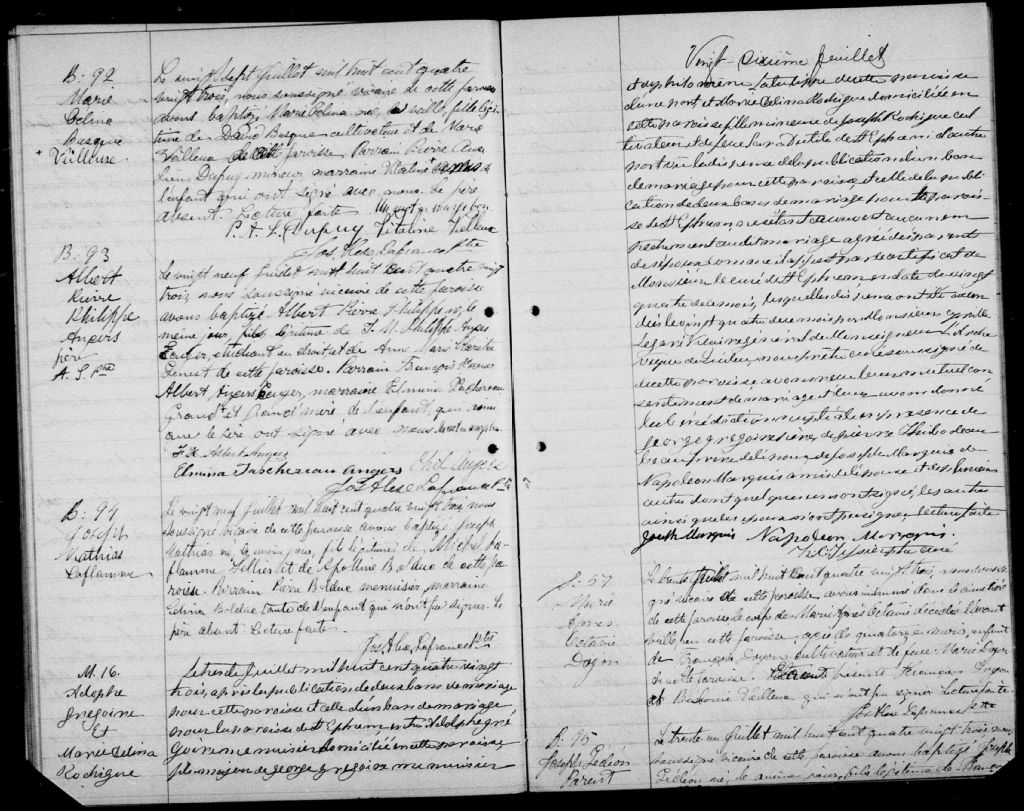 B. 92
Marie
Celina
Busque
Veilleux
Le vingt sept juillet mil huit cent quatre
vingt trois, nous soussigné vicaire de cette paroisse
avons baptisé Marie Celina née la veille, fille légi-
time de David Busque cultivateur et de Marie
Veilleux de cette paroisse. Parrain Pierre
Dupuy mineur marraine
l'enfant qui ont signé avec nous. Le père
absent. Lecture faite.
P. A. L. Dupuy Veilleux
Jos. Alex Lafrance Ptre
B. 93
Albert
Pierre
Philippe
Angers
père
A. S. Ptre
Le vingt neuf juillet mil huit cent quatre vingt
trois, nous soussigné vicaire de cette paroisse
avons baptisé Albert Pierre Philippe né le
même jour, fils légitime de Philippe Angers
Ecuyer, étudiant en droit et de Marie
de cette paroisse. Parrain François Xavier
Albert Angers Ecuyer, marraine Elmina Taschereau
Grand père et Grand'mère de l'enfant, qui ainsi
que le père ont signé avec nous.
F. X. Albert Angers
Elmina Taschereau Angers Phil. Angers
Jos Alex Lafrance Ptre
B. 94
Joseph
Mathias
Laflamme
Le vingt neuf juillet mil huit cent quatre vingt trois, nous
soussigné vicaire de cette paroisse avons baptisé Joseph
Mathias né le même jour, fils légitime de Michel La-
flamme Sellier et de Apolline Bolduc de cette pa-
roisse. Parrain Pierre Bolduc menuisier, marraine
Bolduc tante de l'enfant qui n'ont pu signer. Le
père absent Lecture faite.
Jos Alex Lafrance Ptre
M. 16.
Adolphe
Grégoire
Et
Marie Celina
Rodrigue
Le trente juillet mil huit cent quatre vingt
trois, après la publication de deux bans de mariage
pour cette paroisse et celle d'un ban de mariage
pour la paroisse de St Ephrem, entre Adolphe Gré-
goire menuisier domicilié en cette paroisse
fils majeur de George Grégoire menuisier
Vingt-sixième feuillet
et de Philomène de cette paroisse
d'une part et Marie Celina Rodrigue domiciliée en
cette paroisse fille mineure de Joseph Rodrigue cul
tivateur et de feue Sara Dutile de St Ephrem d'autre
part vu la dispense de la publication d'un ban
de mariage pour cette paroisse, et celle de la publi
cation de deux bans de mariage pour la parois-
se de St Ephrem, ne s'étant découvert aucun em
pêchement au dit mariage agréé des parents
des époux comme il appert par le certificat de
Monsieur le curé de St Ephrem en date du vingt
quatre de ce mois, lesquelles dispenses ont été accor
dées le vingt quatre du mois par Monsieur Cyrille
Legaré Vicaire général de Monseigneur L'Arche
vêque de Québec, nous prêtre curé soussigné de
cette paroisse avons reçu leur mutuel con
sentement de mariage et leur avons donné
la bénédiction nuptiale en présence de
George Grégoire père, de Pierre Thibodeau
beau frère de l'époux de Joseph Marquis de
Napoléon Marquis amis de l'épouse et de plusieurs
autres dont quelques uns ont signé, les autres
ainsi que les époux n'ont pu signer, lecture faite
Joseph Marquis Napoléon Marquis.
S. 57
Marie
Agnès
Octavie
Doyon
Le trente juillet mil huit cent quatre vingt trois, nous sous-
signé vicaire de cette paroisse avons inhumé dans le cimetière
de cette paroisse le corps de Marie Agnès Octavie décédée l'avant
veille, en cette paroisse, agée de quatorze mois, enfant
de François Doyon cultivateur et de feue Marie
de cette paroisse. Etaient présents François Doyon
et Veilleux qui n'ont pu signer Lecture faite.
Jos Alex Lafrance Ptre
B. 95
Joseph Gédéon
Parent
Le trente un juillet mil huit cent quatre vingt trois nous
soussigné vicaire de cette paroisse avons baptisé Joseph
Gédéon né le même jour, fils légitime de